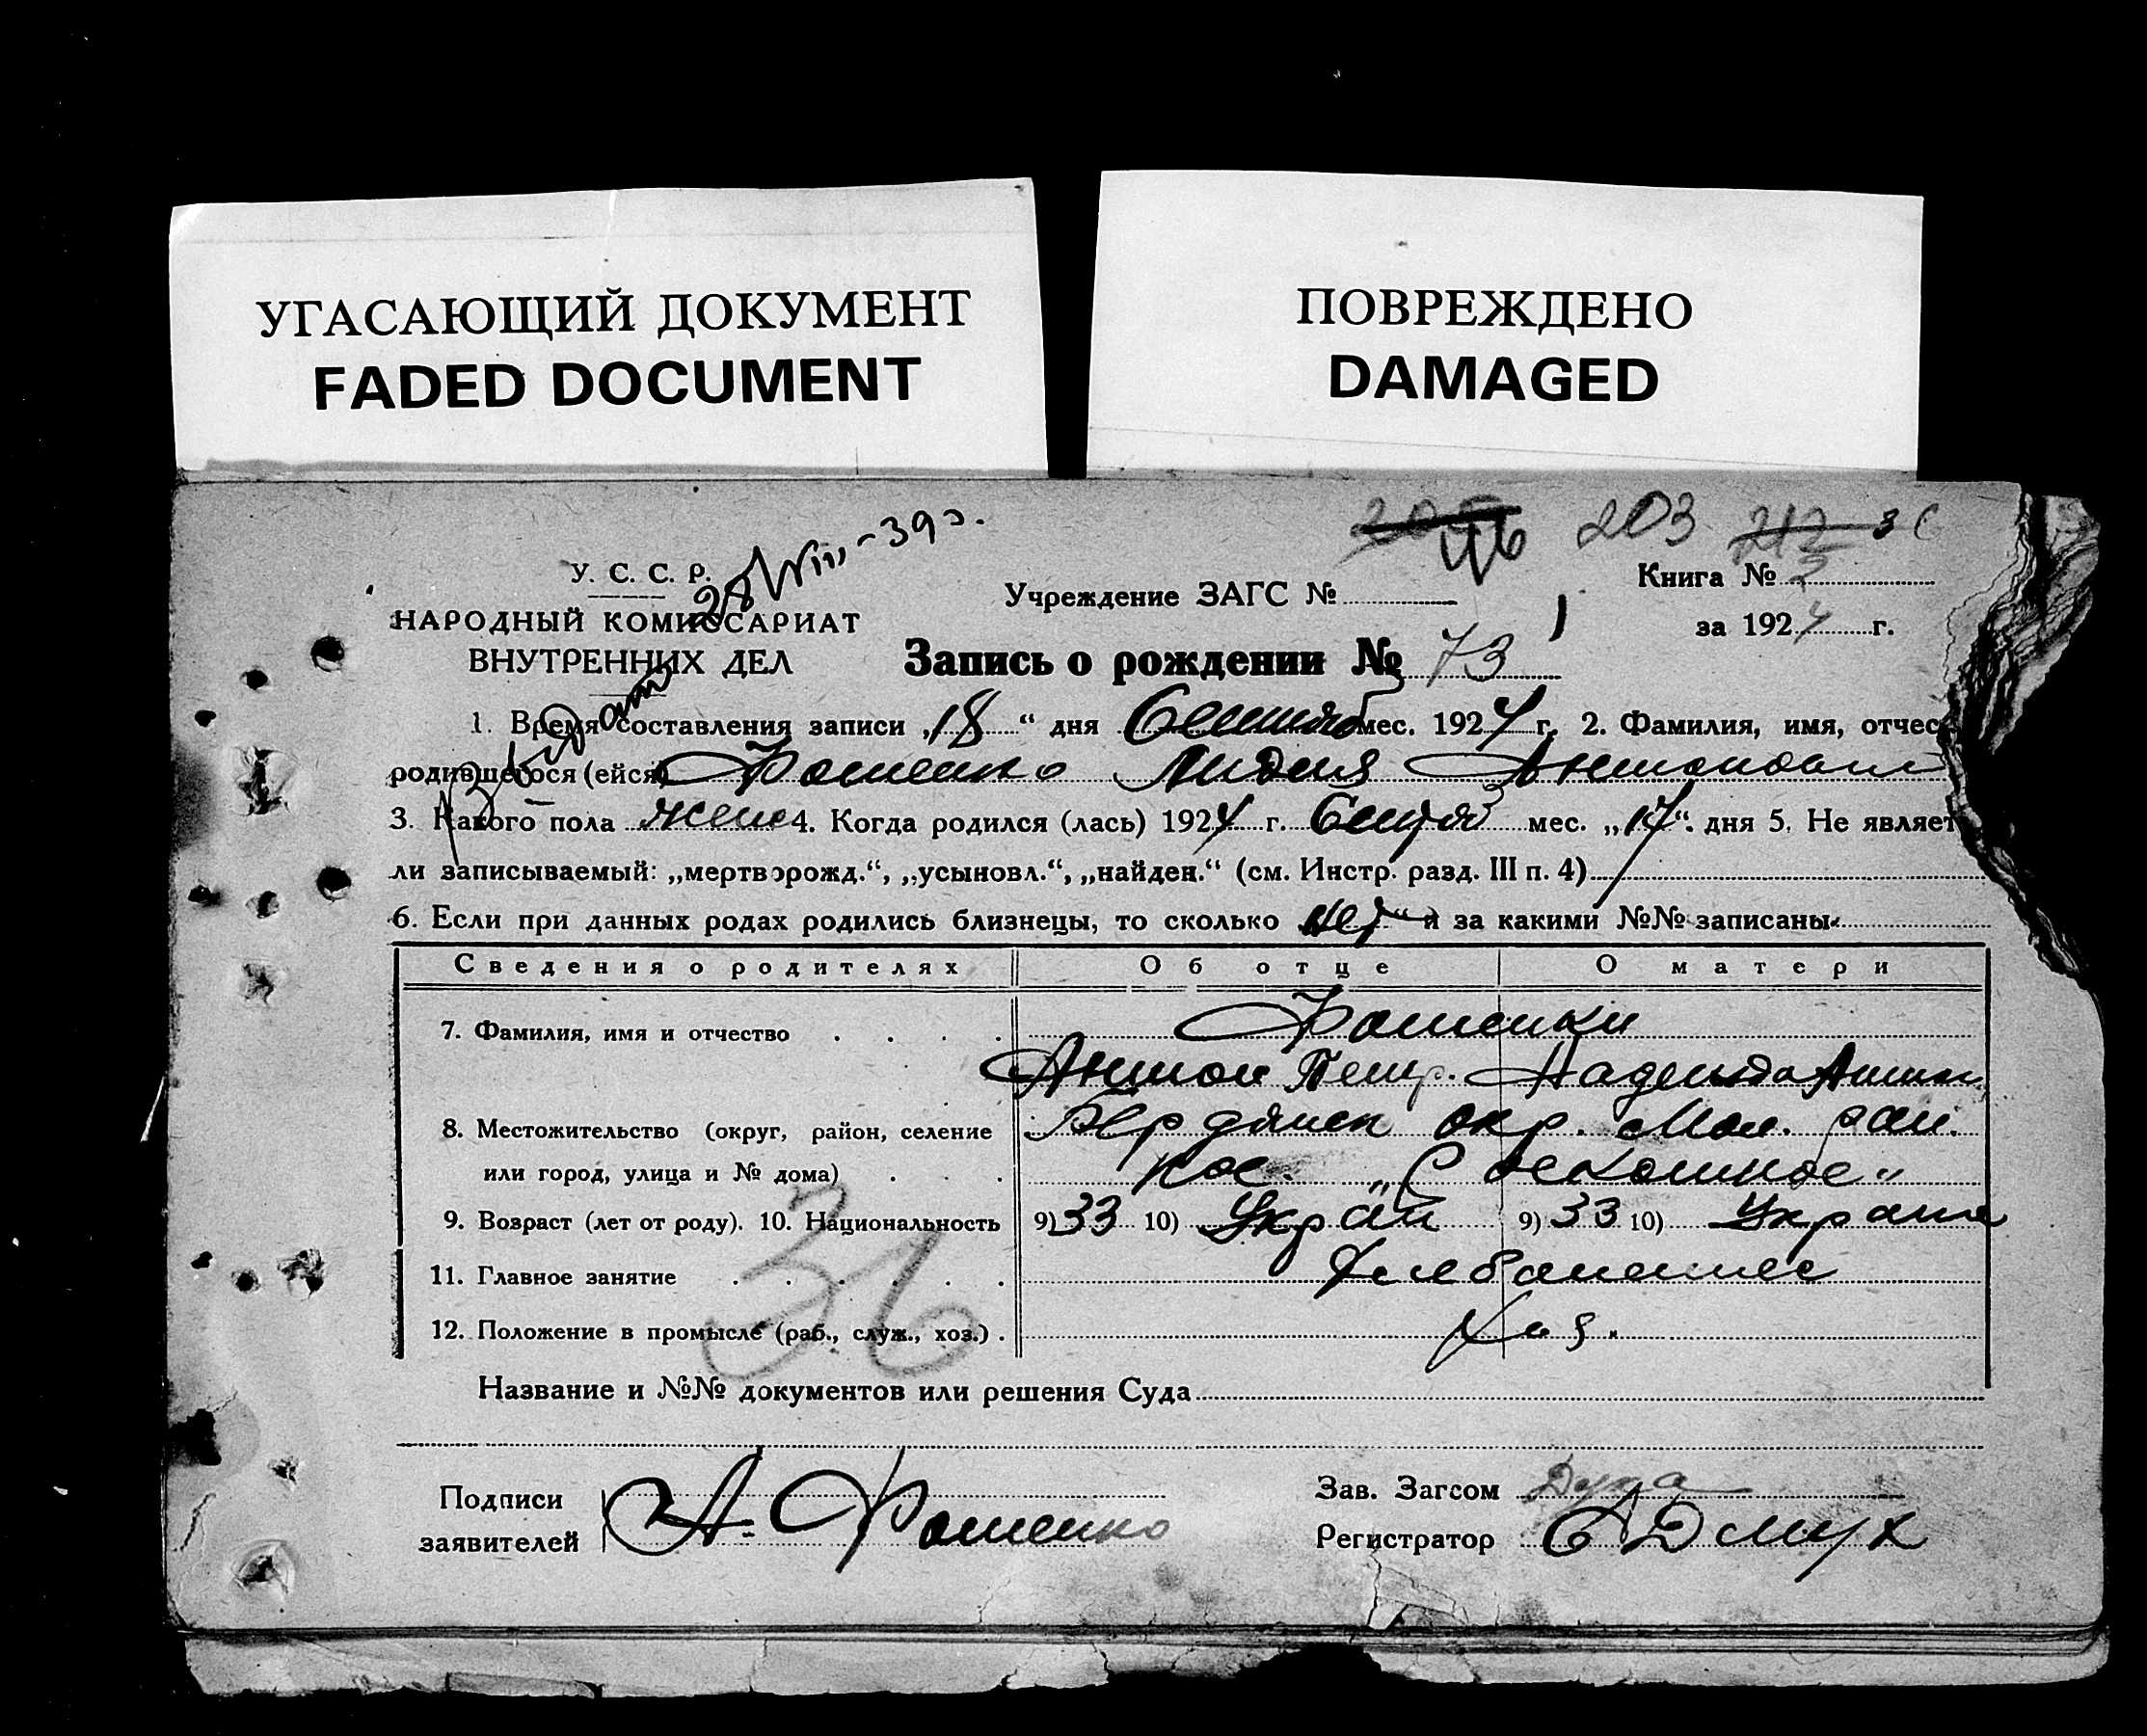 УГАСАЮЩИЙ ДОКУМЕНТ
FADED DOCUMENT
ПОВРЕЖДЕНО
DAMAGED
203
28/VIII-39
У. С. С. Р.
НАРОДНЫЙ КОМИССАРИАТ
ВНУТРЕННИХ ДЕЛ
Учреждение ЗАГС №
Книга №
за 1924 г.
Запись о рождении № 73
1. Время составления записи „18“ дня мес. 1924 г. 2. Фамилия, имя, отчес
родившегося (ейся) Фоменко Лидия
3. Какого пола жен 4. Когда родился (лась) 1924 г. мес. „17“ дня 5. Не являет
ли записываемый: „мертворожд.“, „усыновл.“, „найден.“ (см. Инстр. разд. III п. 4)
6. Если при данных родах родились близнецы, то сколько нет и за какими №№ записаны
Сведения о родителях Об отце О матери
7. Фамилия, имя и отчество Фоменки
Антон Петр. Надежда
8. Местожительство (округ, район, селение окр. Мол. рай.
или город, улица и № дома) пос.
9. Возраст (лет от роду). 10. Национальность 9) 33 10) Украин 9) 33 10)
11. Главное занятие
12. Положение в промысле (раб., служ., хоз.) Хоз.
36
Название и №№ документов или решения Суда
Подписи
заявителей А. Фоменко
Зав. Загсом
Регистратор